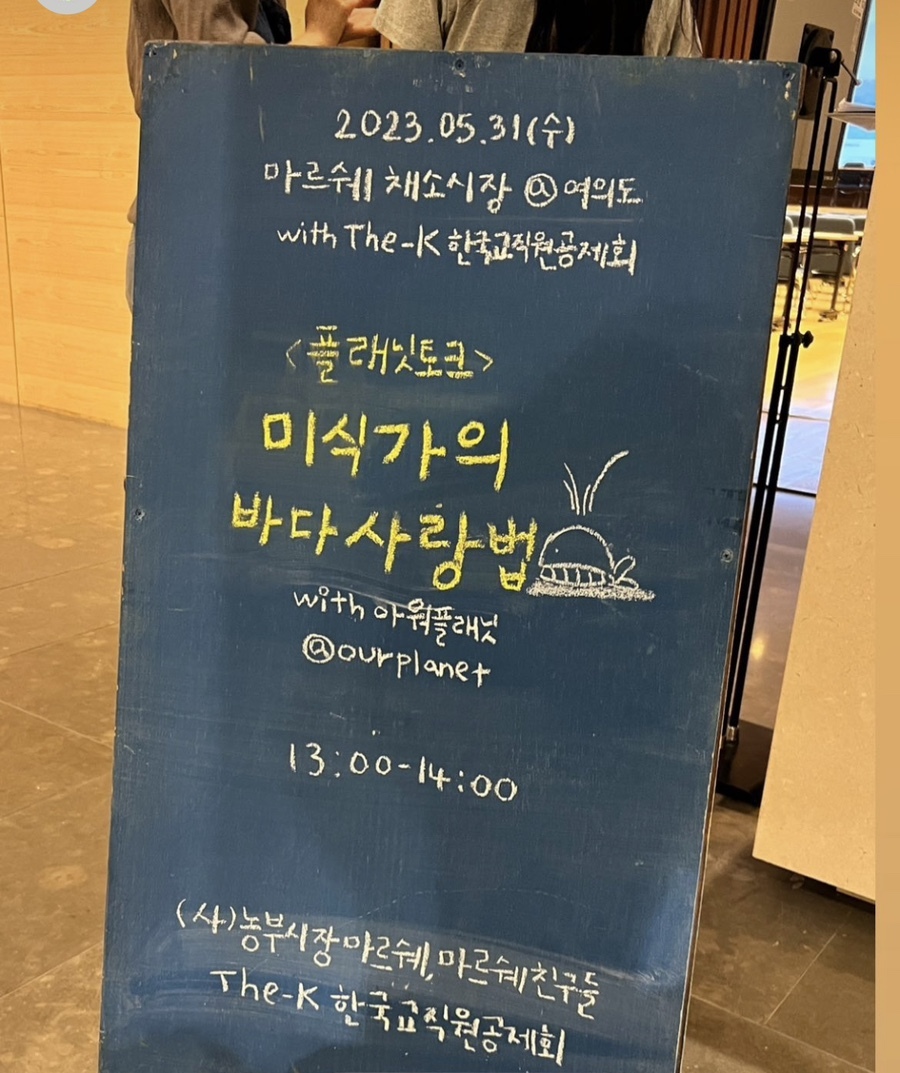 2023.05.31(수)
마르쉐 채소시장 @여의도
with The-K 한국교직원공제회
<플래닛토크>
미식가의
바다사랑법
with 아워플래닛
@ourplanet
13:00-14:00
(사)농부시장마르쉐, 마르쉐친구들
The-K 한국교직원공제회